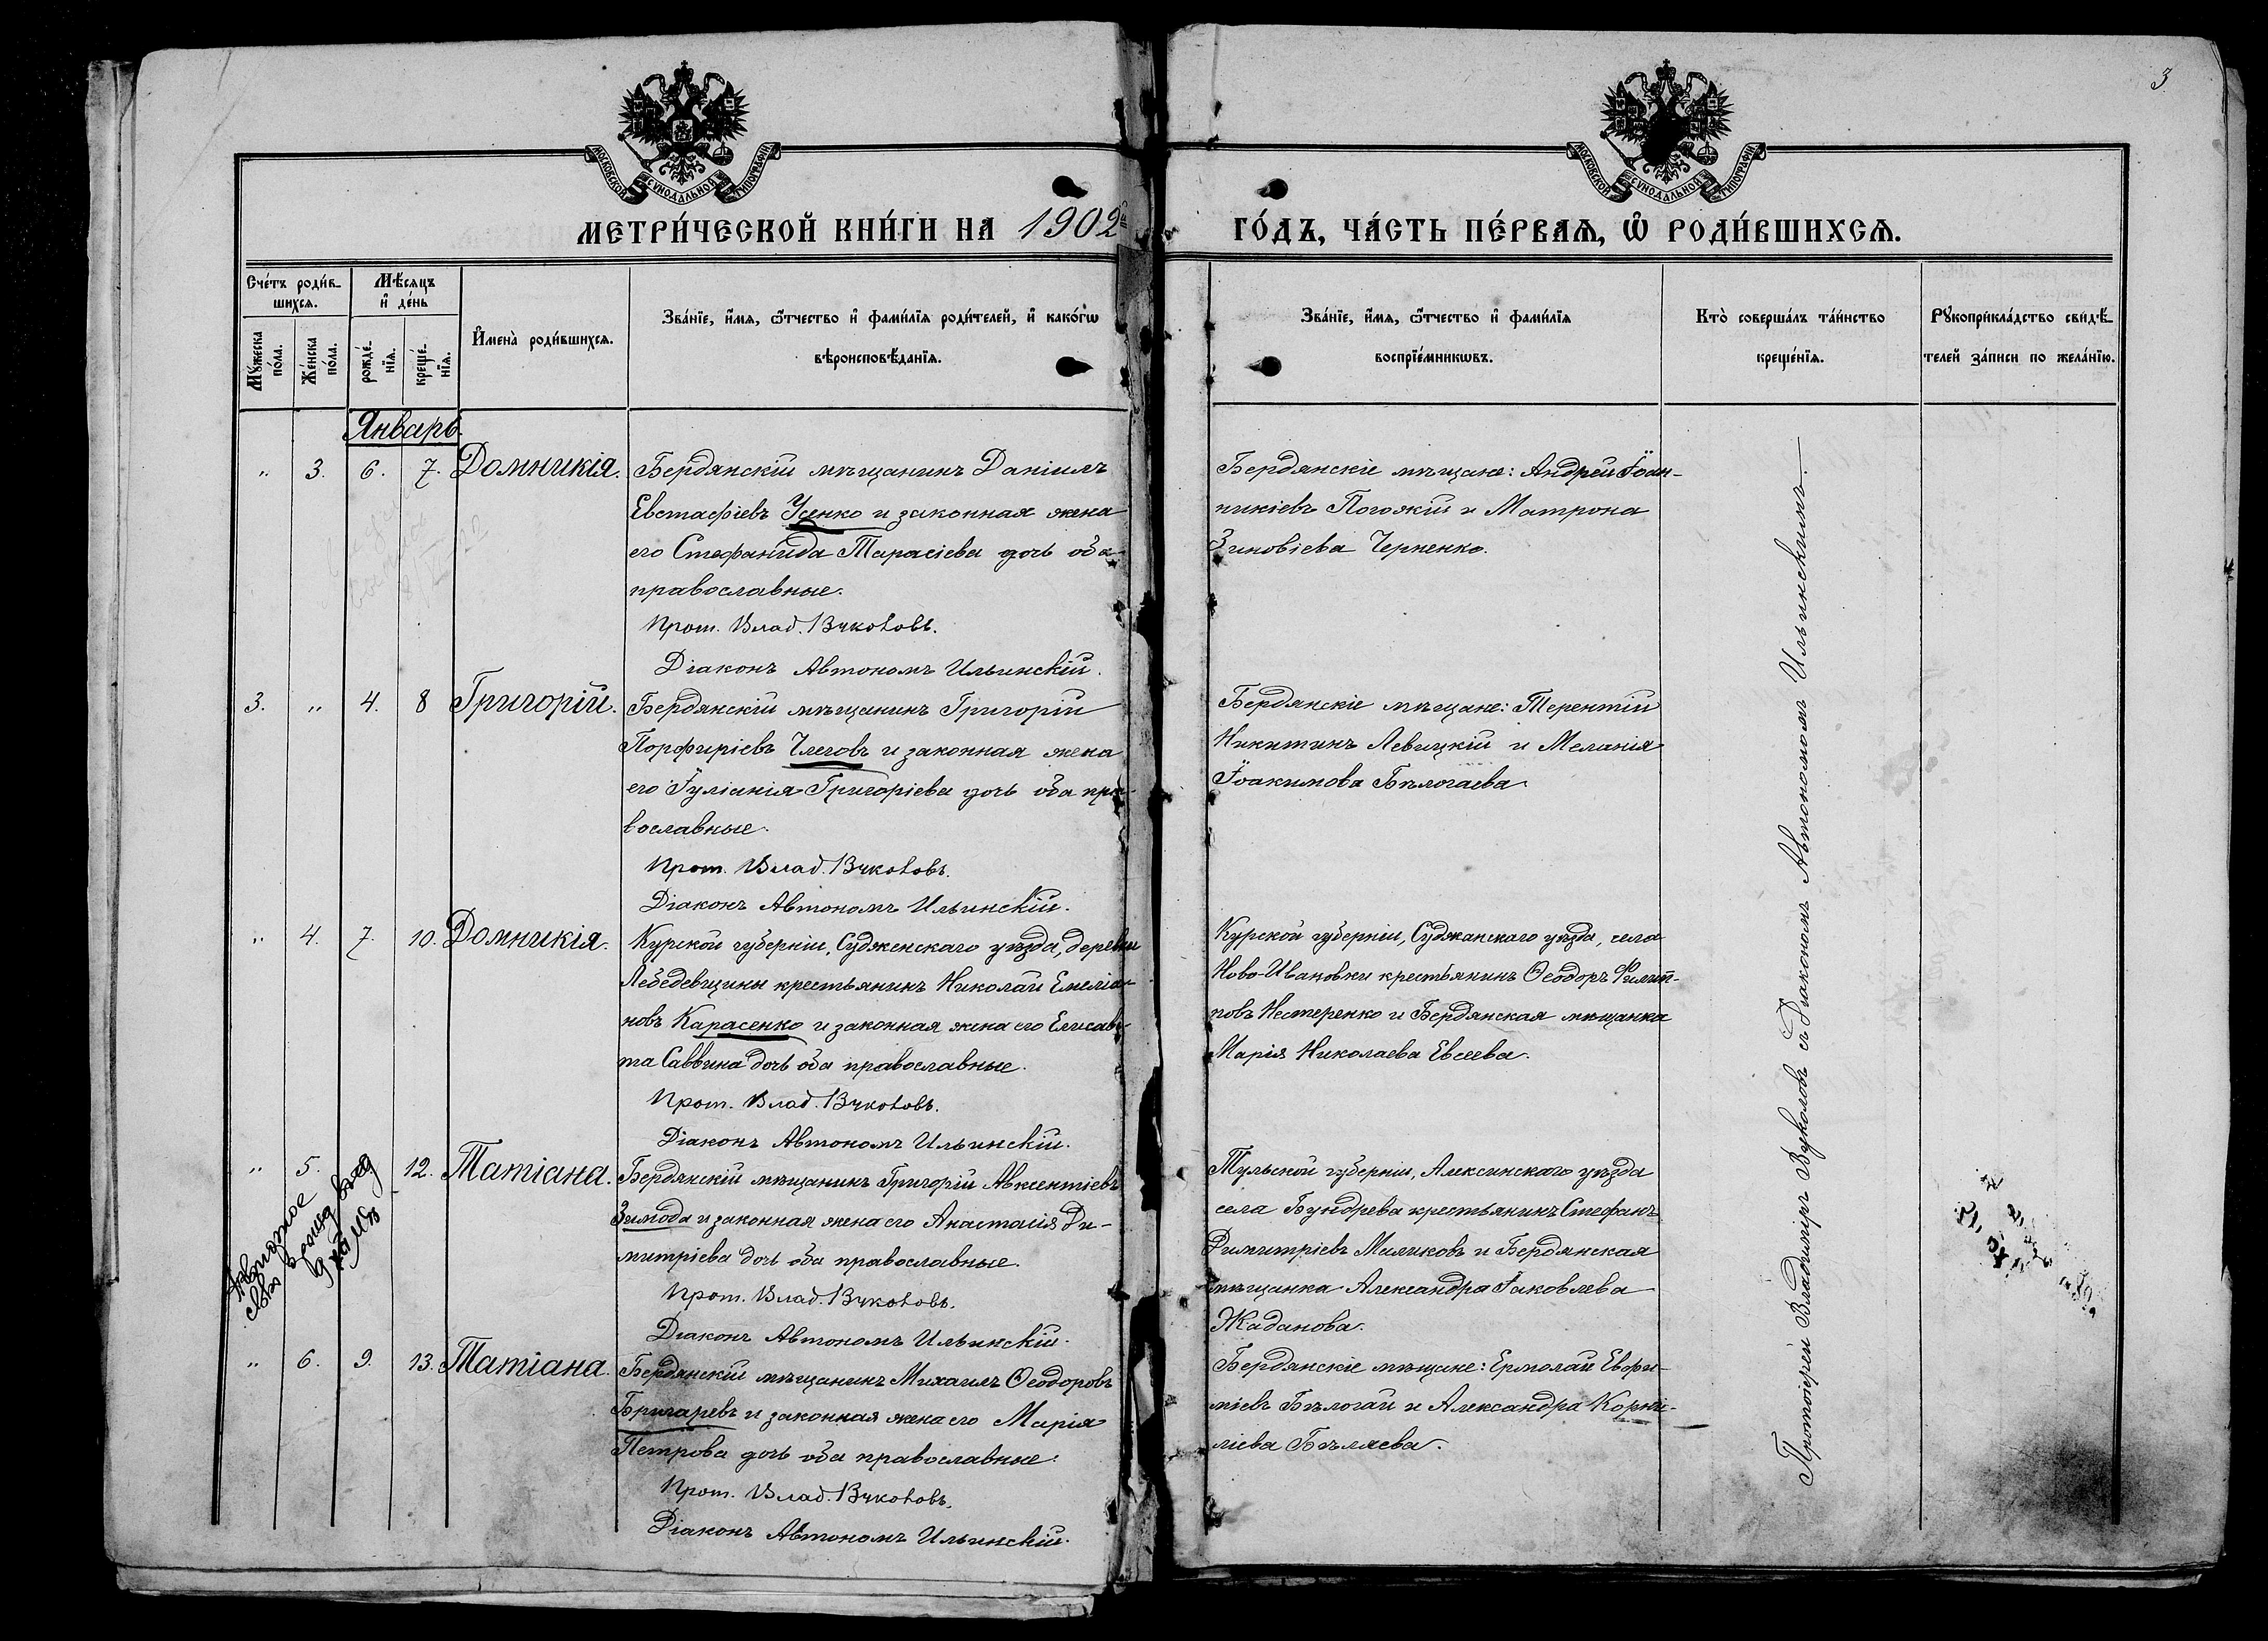 3
МОСКОВСКОЙ СѴНОДАЛЬНОЙ ТИПОГРАФІИ
МОСКОВСКОЙ СѴНОДАЛЬНОЙ ТИПОГРАФІИ
МЕТРИ́ЧЕСКОЙ КНИ́ГИ НА 1902
ГО́ДЪ, ЧА́СТЬ ПЕ́РВАѦ, Ѡ҆ РОДИ́ВШИХСѦ.
Сче́тъ роди́в-
шихсѧ.
Мꙋ́жеска
по́ла.
Же́нска
по́ла.
Мѣ́сѧцъ
и҆ де́нь
рожде́-
нїѧ.
креще́-
нїѧ.
И҆мена̀ роди́вшихсѧ.
Зва́нїе, и҆́мѧ, ѻ҆́тчество и҆ фами́лїѧ роди́телей, и҆ како́гѡ
вѣроисповѣ́данїѧ.
Зва́нїе, и҆́мѧ, ѻ҆́тчество и҆ фами́лїѧ
воспрїе́мникѡвъ.
Кто̀ соверша́лъ та́инство
креще́нїѧ.
Рꙋкоприкла́дство свидѣ́-
телей за́писи по жела́нїю.
Январь.
" 3. 6. 7. Домникія.
Бердянскій мѣщанинъ Даніилъ
Евстафіевъ Усенко и законная жена
его Стефанида Тарасіева дочь оба
православные.
Прот. Влад. Вуколовъ.
Діаконъ Автономъ Ильинскій.
Бердянскіе мѣщане: Андрей Іоан-
никіевъ Погожій и Матрона
Зиновіева Черненко.
3. " 4. 8 Григорій.
Бердянскій мѣщанинъ Григорій
Порфиріевъ Члеговъ и законная жена
его Іуліанія Григоріева дочь оба пра-
вославные.
Прот. Влад. Вуколовъ.
Діаконъ Автономъ Ильинскій.
Бердянскіе мѣщане: Терентій
Никитинъ Левицкій и Меланія
Іоакимова Бѣлогаева.
" 4. 7. 10. Домникія.
Курской губерніи, Судженскаго уѣзда, деревни
Лебедевщины крестьянинъ Николай Емеліа-
новъ Карасенко и законная жена его Елисаве-
та Саввина дочь оба православные.
Прот. Влад. Вуколовъ.
Діаконъ Автономъ Ильинскій.
Курской губерніи, Суджанскаго уѣзда, села
Ново-Ивановки крестьянинъ Ѳеодоръ Филип-
повъ Нестеренко и Бердянская мѣщанка
Марія Николаева Евсеева.
" 5. 12. Татіана.
Бердянскій мѣщанинъ Григорій Авксентіевъ
Зимода и законная жена его Анастасія Ди-
митріева дочь оба православные.
Прот. Влад. Вуколовъ.
Діаконъ Автономъ Ильинскій.
Тульской губерніи, Алексинскаго уѣзда
села Бундрева крестьянинъ Стефанъ
Димитріевъ Миликовъ и Бердянская
мѣщанка Александра Іаковлева
Жаданова.
" 6. 9. 13. Татіана.
Бердянскій мѣщанинъ Михаилъ Ѳеодоровъ
Бригаревъ и законная жена его Марія
Петрова дочь оба православные.
Прот. Влад. Вуколовъ.
Діаконъ Автономъ Ильинскій.
Бердянскіе мѣщане: Ермолай Евфи-
міевъ Бѣлогай и Александра Корни-
ліева Бѣляева.
Протоіерей Владиміръ Вуколовъ съ Діакономъ Автономомъ Ильинскимъ.